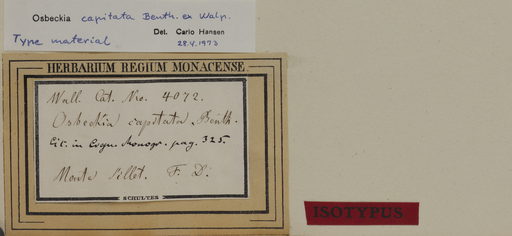 Osbeckia capitata Benth. ex Walp.
Det. Carlo Hansen
Type material
28.V.1973
HERBARIUM REGIUM MONACENSE.
Wall. Cat. Nro. 4072.
Osbeckia capitata Benth.
Cit. in Cogn. Monogr. pag. 325.
Monte Sillet. F. D.
SCHULTES
ISOTYPUS